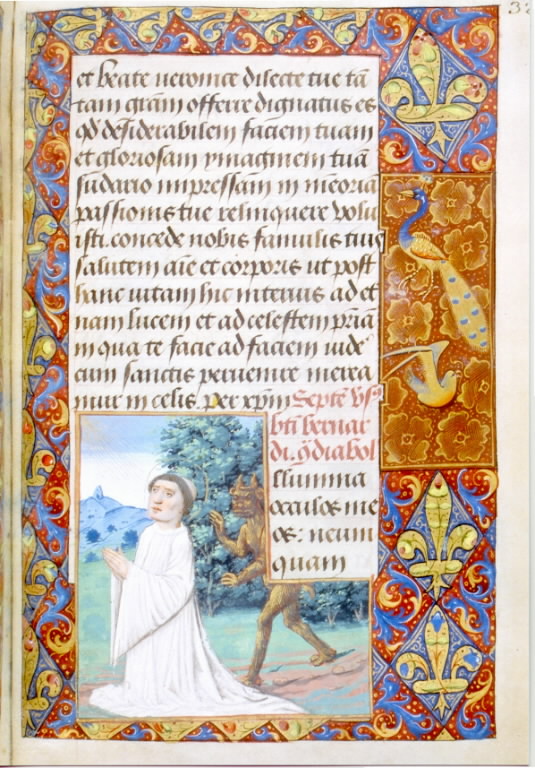 32
et beate ueronice dilecte tue tā
tam grām offerre dignatus es
qd̄ desiderabilem faciem tuam
et gloriosam ymaginem tuā
sudario impressam in meōria
passionis tue relinquere volu
isti. concede nobis famulis tuis
salutem aīe et corporis ut post
hanc uitam hic interius ad et
nam lucem et ad celestem p̄riā
in qua te facie ad faciem uidē
cum sanctis peruenire merea
mur in celis. per xp̄m Septē vs̄
bti bernar
di. q̄ diabol
Illumina
oculos me
os: neum
quam